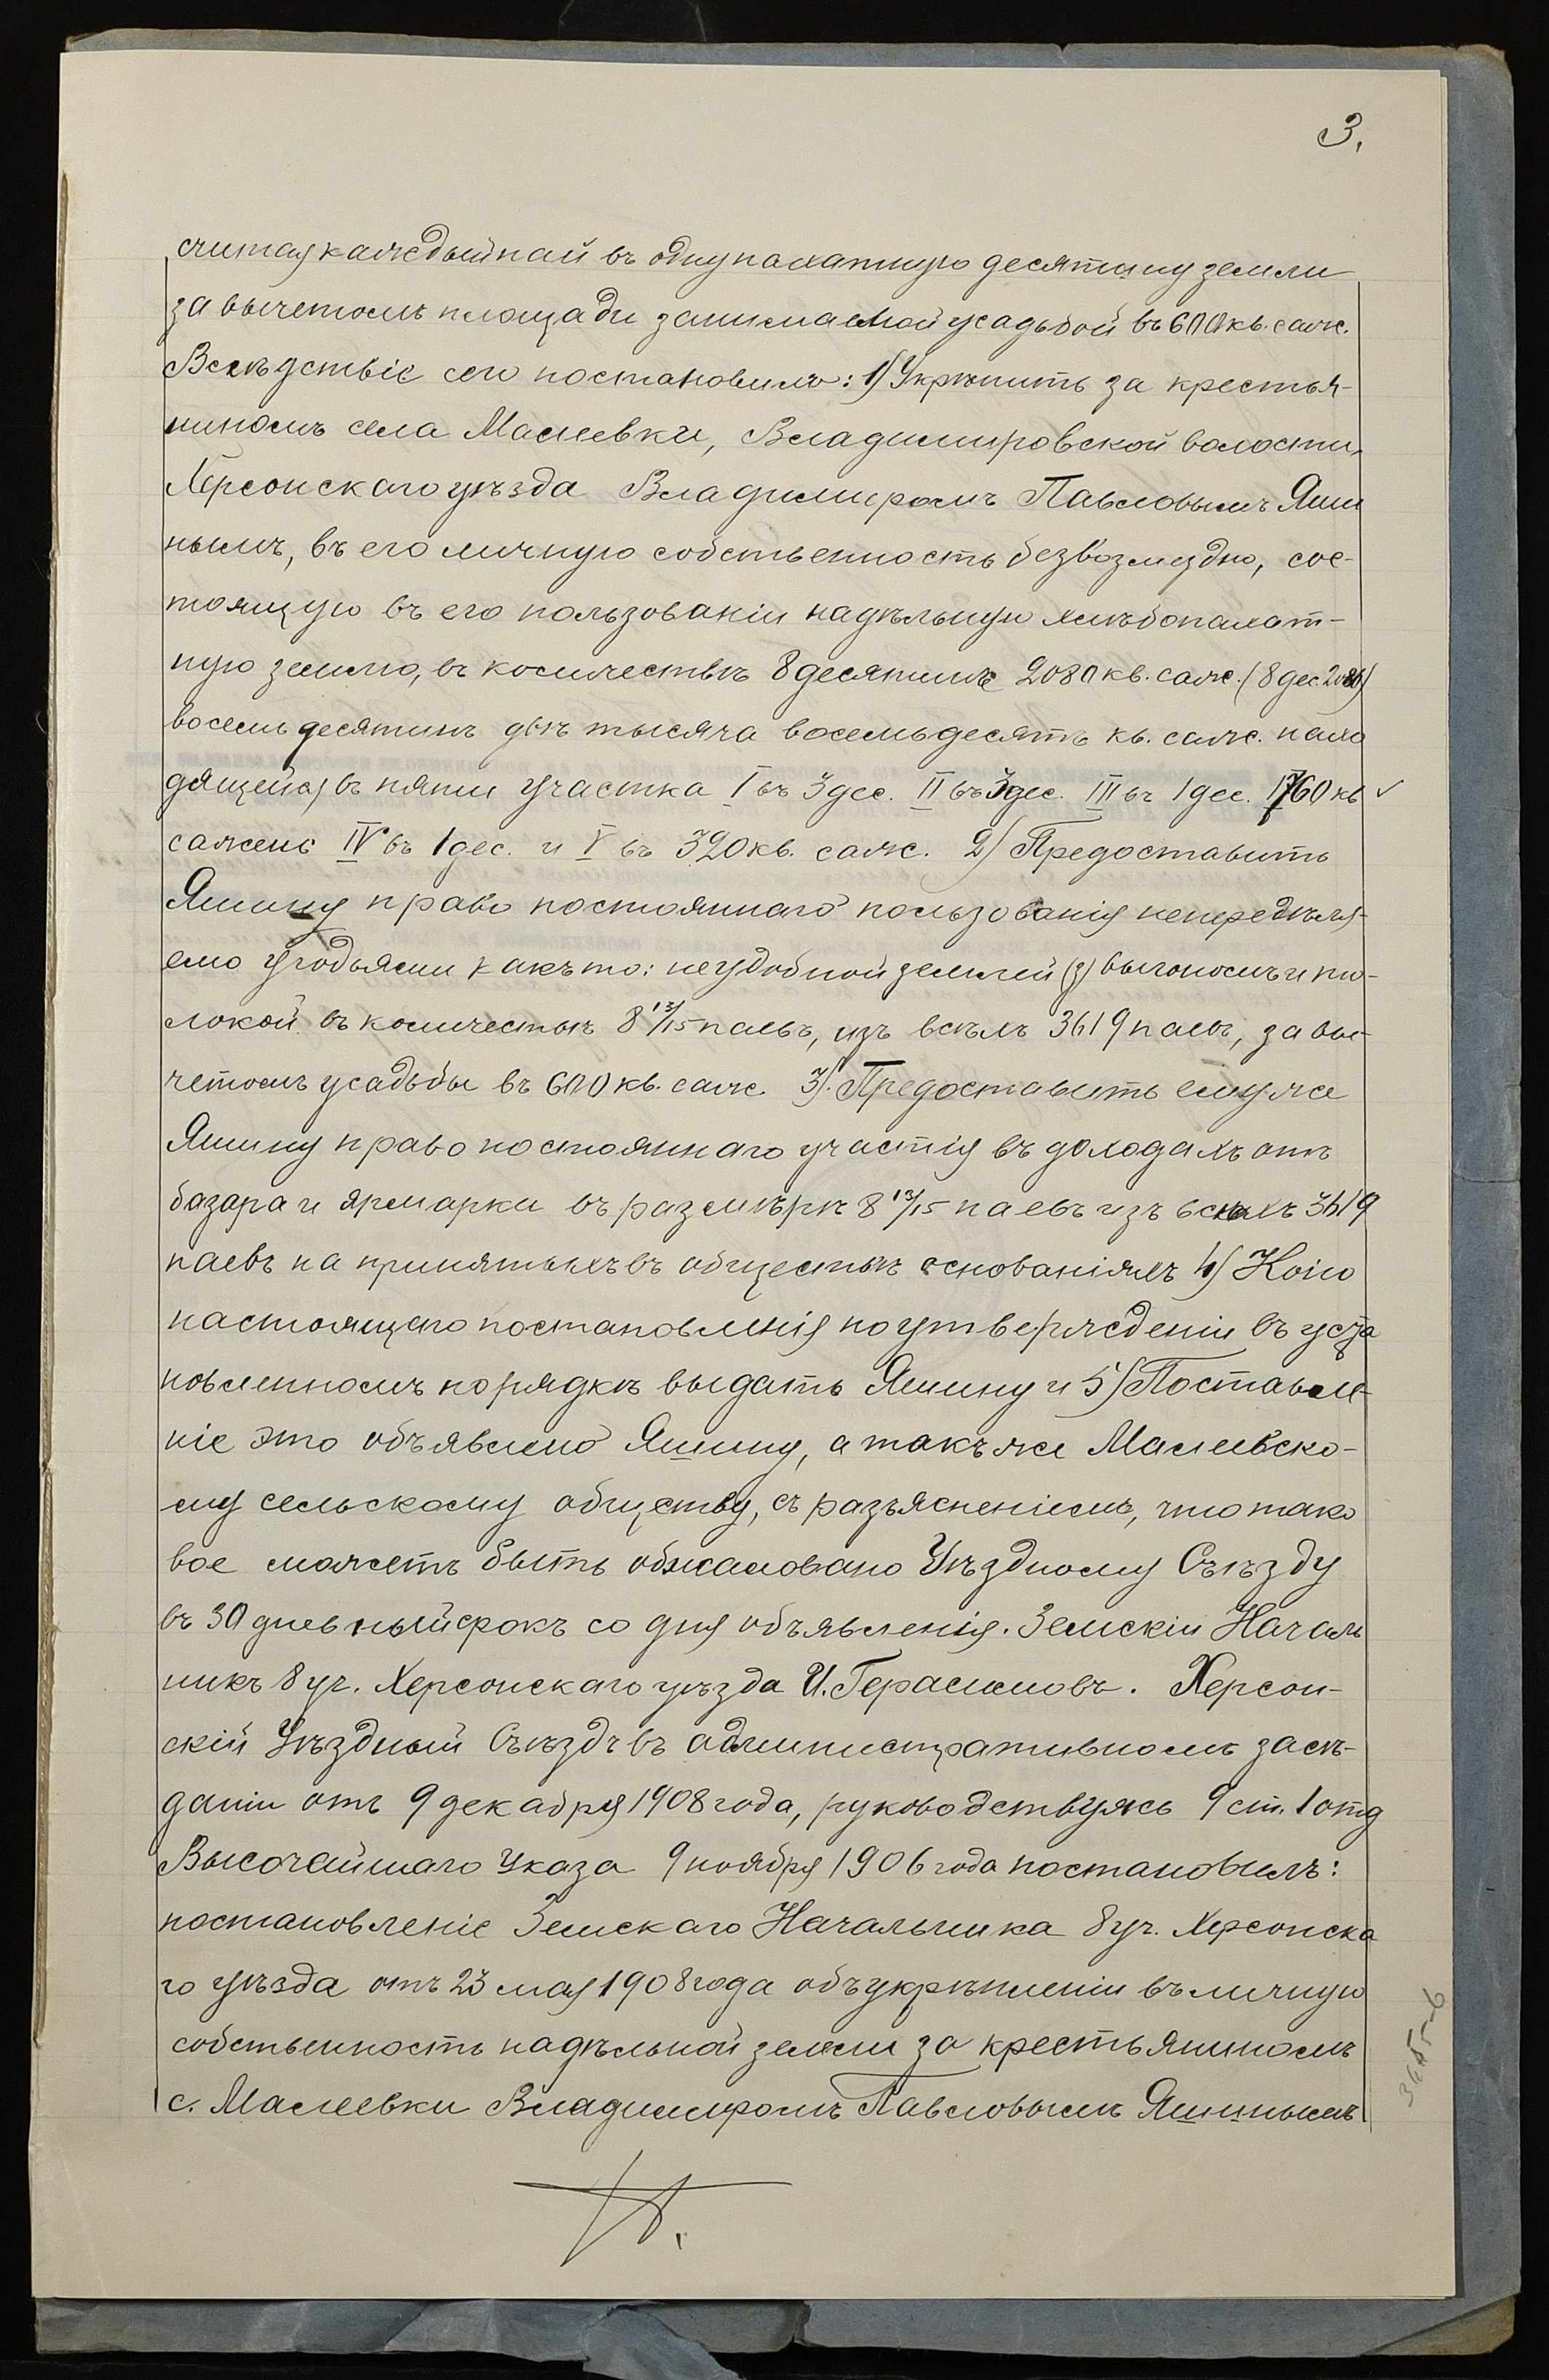 3.
считая каждый пай въ одну пахатную десятину земли
за вычетомъ площади занимаемой усадьбой въ 600 кв. саж.
Вслѣдствіе сего постановилъ: 1) Укрѣпить за крестья-
ниномъ села Малеевки, Владимировской волости,
Херсонскаго уѣзда Владимиромъ Павловымъ Яши
нымъ, въ его личную собственность безвозмездно, сос-
тоящую въ его пользованіи надѣльную хлѣбопахат-
ную землю, въ количествѣ 8 десятинъ 2080 кв. саж. (8 дес. 2080)
восемь десятинъ двѣ тысяча восемьдесятъ кв. саж. нахо
дящейся въ пяти участка I въ 3 дес. II въ 3 дес. III въ 1 дес. 1760 кв
сажень IV въ 1 дес. и V въ 320 кв. саж. 2) Предоставить
Яшину право постояннаго пользованія непередѣля-
емо угодьями какъ то: неудобной землей (з) выгономъ и то-
локой въ количествѣ 8 13/15 паевъ, изъ всѣхъ 3619 паевъ, за вы-
четомъ усадьбы въ 600 кв. саж. 3). Предоставить ему же
Яшину право постояннаго участія въ доходахъ отъ
базара и ярмарки въ размѣрѣ 8 13/15 паевъ изъ всѣхъ 3619
паевъ на принятыхъ въ обществѣ основаніяхъ 4) Копію
настоящего постановленія по утвержденіи въ уста
новленномъ порядкѣ выдать Яшину и 5) Поставле-
ніе это объявлено Яшину, а такъ же Малеевско-
му сельскому обществу, съ разъясненіемъ, что тако
вое можетъ быть обжаловано Уѣздному Съѣзду
въ 30 дневный срокъ со дня объявленія. Земскій Началь
никъ 8 уч. Херсонскаго уѣзда И. Герасимовъ. Херсон-
скій Уѣздный Съѣздъ въ административномъ засѣ-
даніи отъ 9 декабря 1908 года, руководствуясь 9 ст. 1 отд
Высочайшаго Указа 9 ноября 1906 года постановилъ:
постановленіе Земскаго Начальника 8 уч. Херсонска
го уѣзда отъ 23 мая 1908 года объ укрѣпленіи въ личную
собственность надѣльной земли за крестьяниномъ
с. Малеевки Владимиромъ Павловымъ Яшинымъ